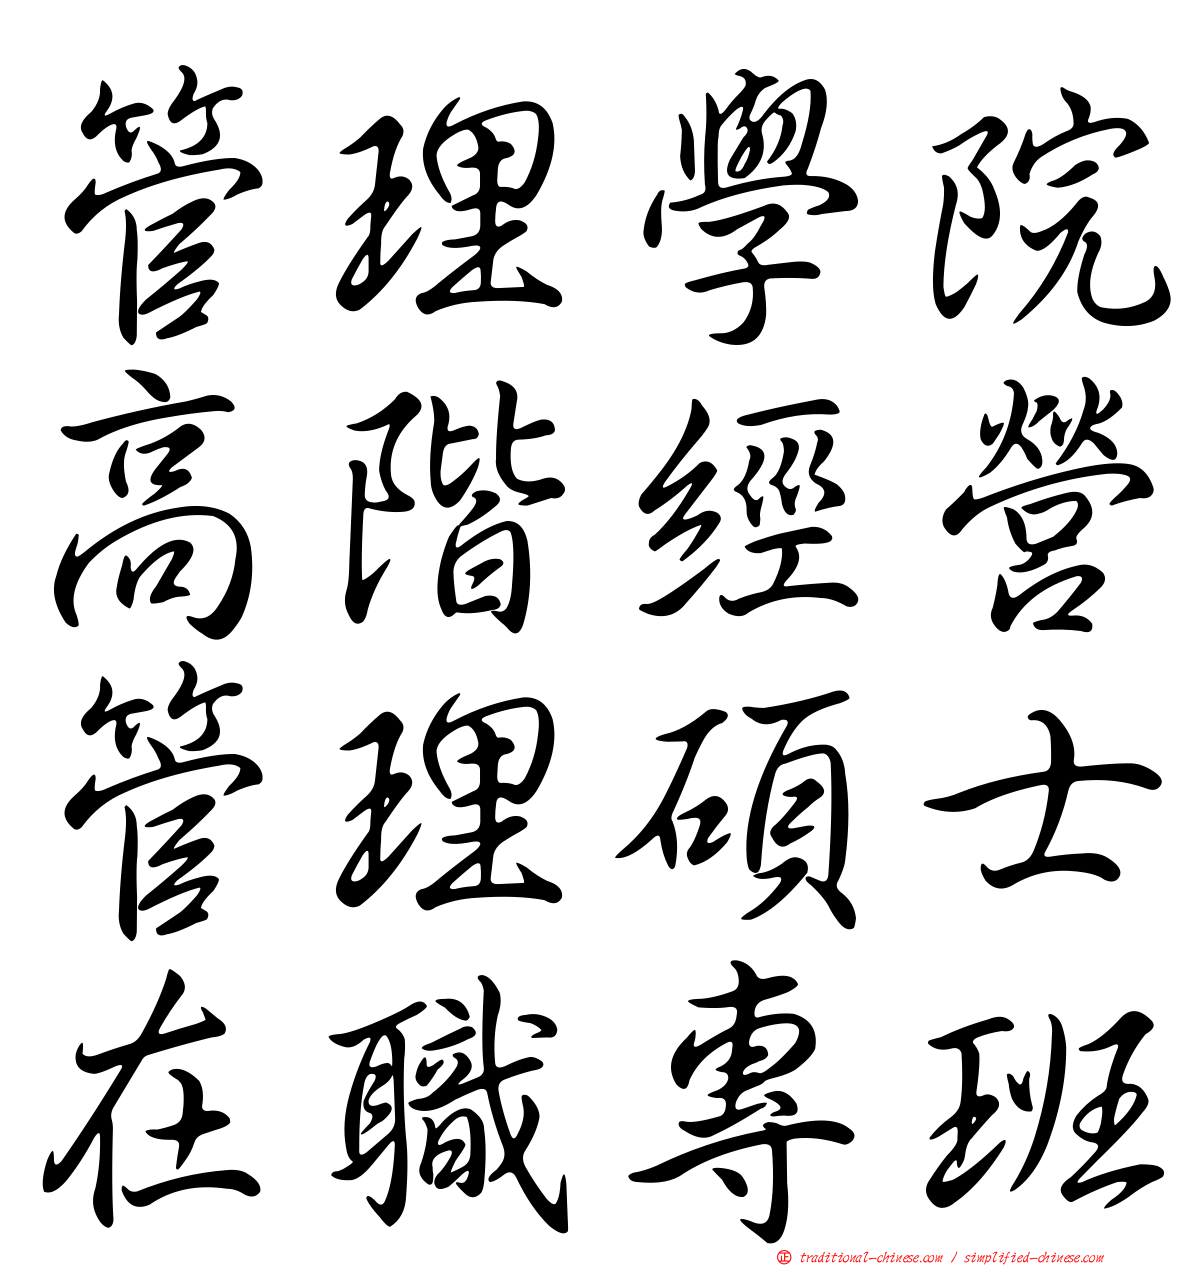 管理學院
高階經營
管理碩士
在職專班
正 traditional-chinese.com / simplified-chinese.com